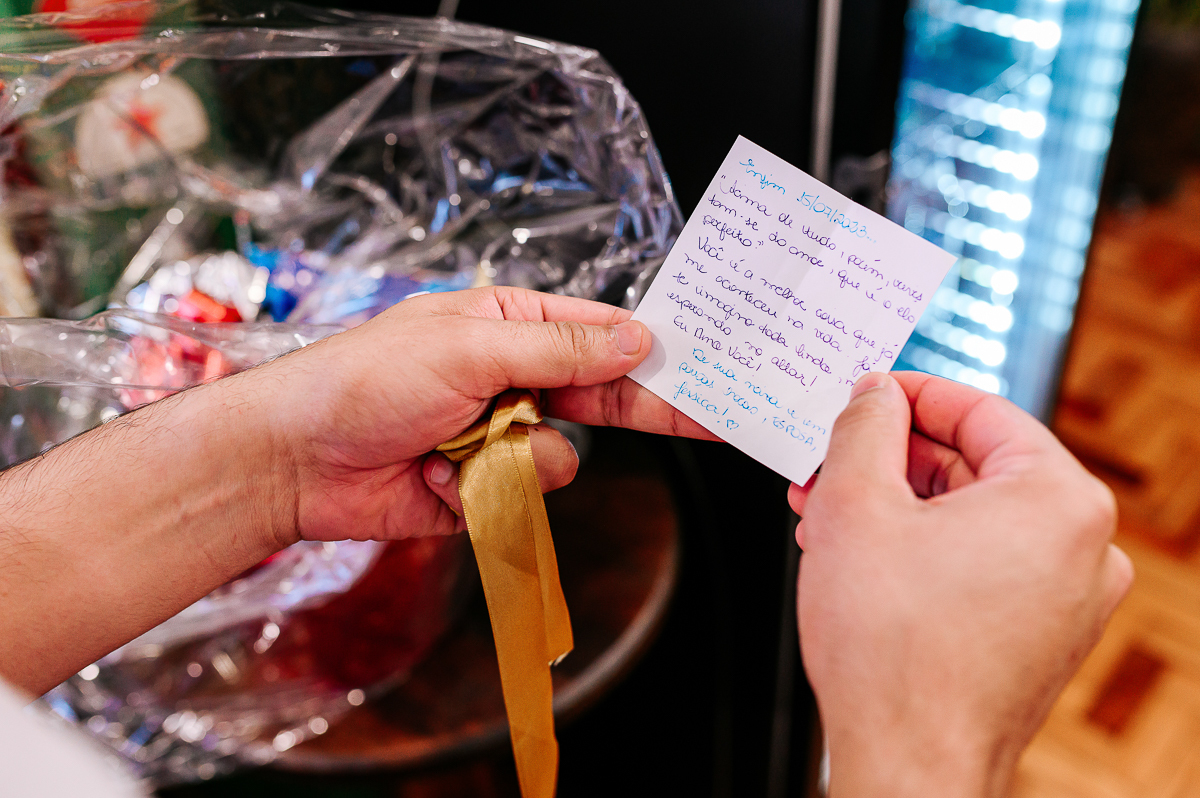 Enfim 15/07/2023...
"Acima de tudo, porém, revis
tam-se do amor, que é o elo
perfeito."
Você é a melhor coisa que já
me aconteceu na vida. Já
te imagino todo lindo,
esperando no altar!
Eu Amo Você!
De sua noiva e em
poucas horas, ESPOSA,
Jéssica! ♡